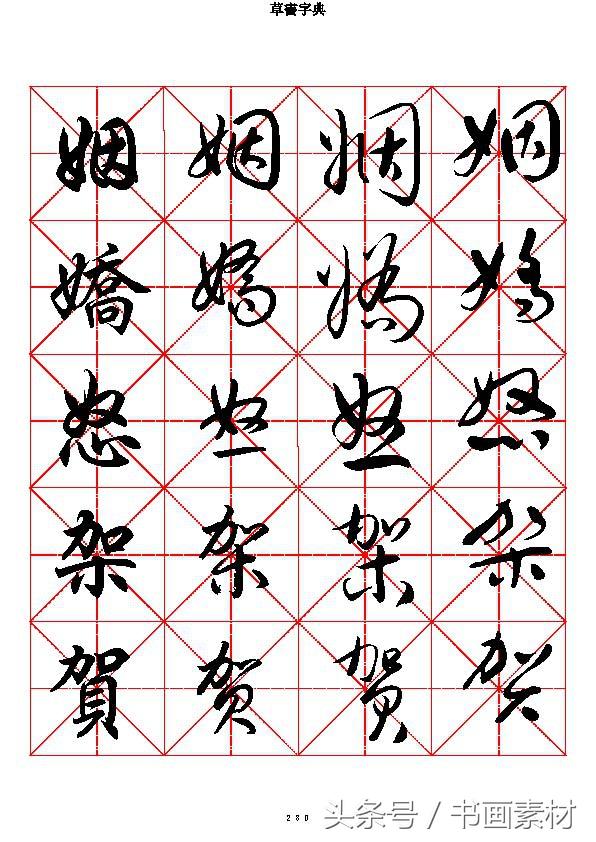 草書字典
姻 姻 姻 姻
嬌 嬌 嬌 嬌
怒 怒 怒 怒
架 架 架 架
賀 賀 賀 賀
280
头条号 / 书画素材